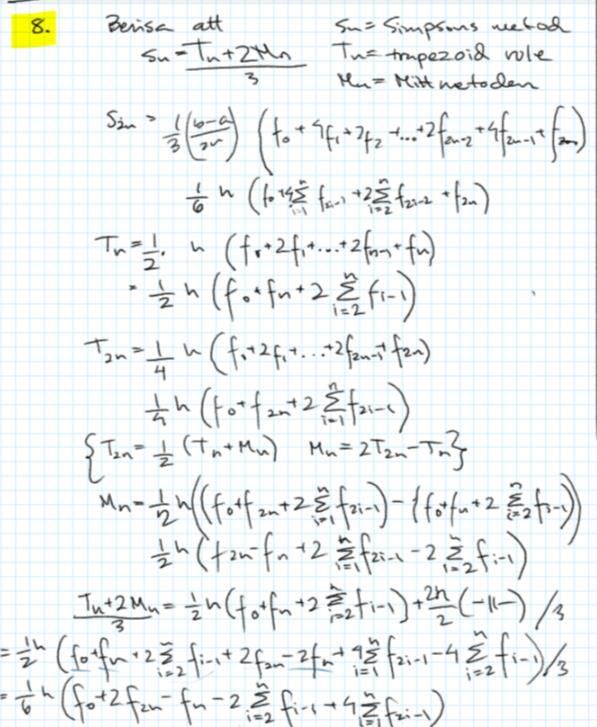 8. Bevisa att Sn = Simpsons metod
Sn = Tn+2Mn / 3 Tn = trapezoid rule
Mn = Mittmetoden
S2n = 1/3 (b-a / 2n) (f0 + 4f1 + 2f2 + ... + 2f2n-2 + 4f2n-1 + f2n)
1/6 h (f0 + 4 Σ_{i=1}^{n} f2i-1 + 2 Σ_{i=2}^{n} f2i-2 + f2n)
Tn = 1/2 · h (f0 + 2f1 + ... + 2fn-1 + fn)
= 1/2 h (f0 + fn + 2 Σ_{i=2}^{n} fi-1)
T2n = 1/4 h (f0 + 2f1 + ... + 2f2n-1 + f2n)
1/4 h (f0 + f2n + 2 Σ_{i=1}^{n} f2i-1)
{T2n = 1/2 (Tn + Mn) Mn = 2T2n - Tn}
Mn = 1/2 h ((f0 + f2n + 2 Σ_{i=1}^{n} f2i-1) - (f0 + fn + 2 Σ_{i=2}^{n} fi-1))
1/2 h (f2n - fn + 2 Σ_{i=1}^{n} f2i-1 - 2 Σ_{i=2}^{n} fi-1)
Tn+2Mn / 3 = 1/2 h (f0 + fn + 2 Σ_{i=2}^{n} fi-1) + 2h/2 (-11-) /3
= 1/2 h (f0 + fn + 2 Σ_{i=2}^{n} fi-1 + 2f2n - 2fn + 4 Σ_{i=1}^{n} f2i-1 - 4 Σ_{i=2}^{n} fi-1) /3
= 1/6 h (f0 + 2f2n - fn - 2 Σ_{i=2}^{n} fi-1 + 4 Σ_{i=1}^{n} f2i-1)